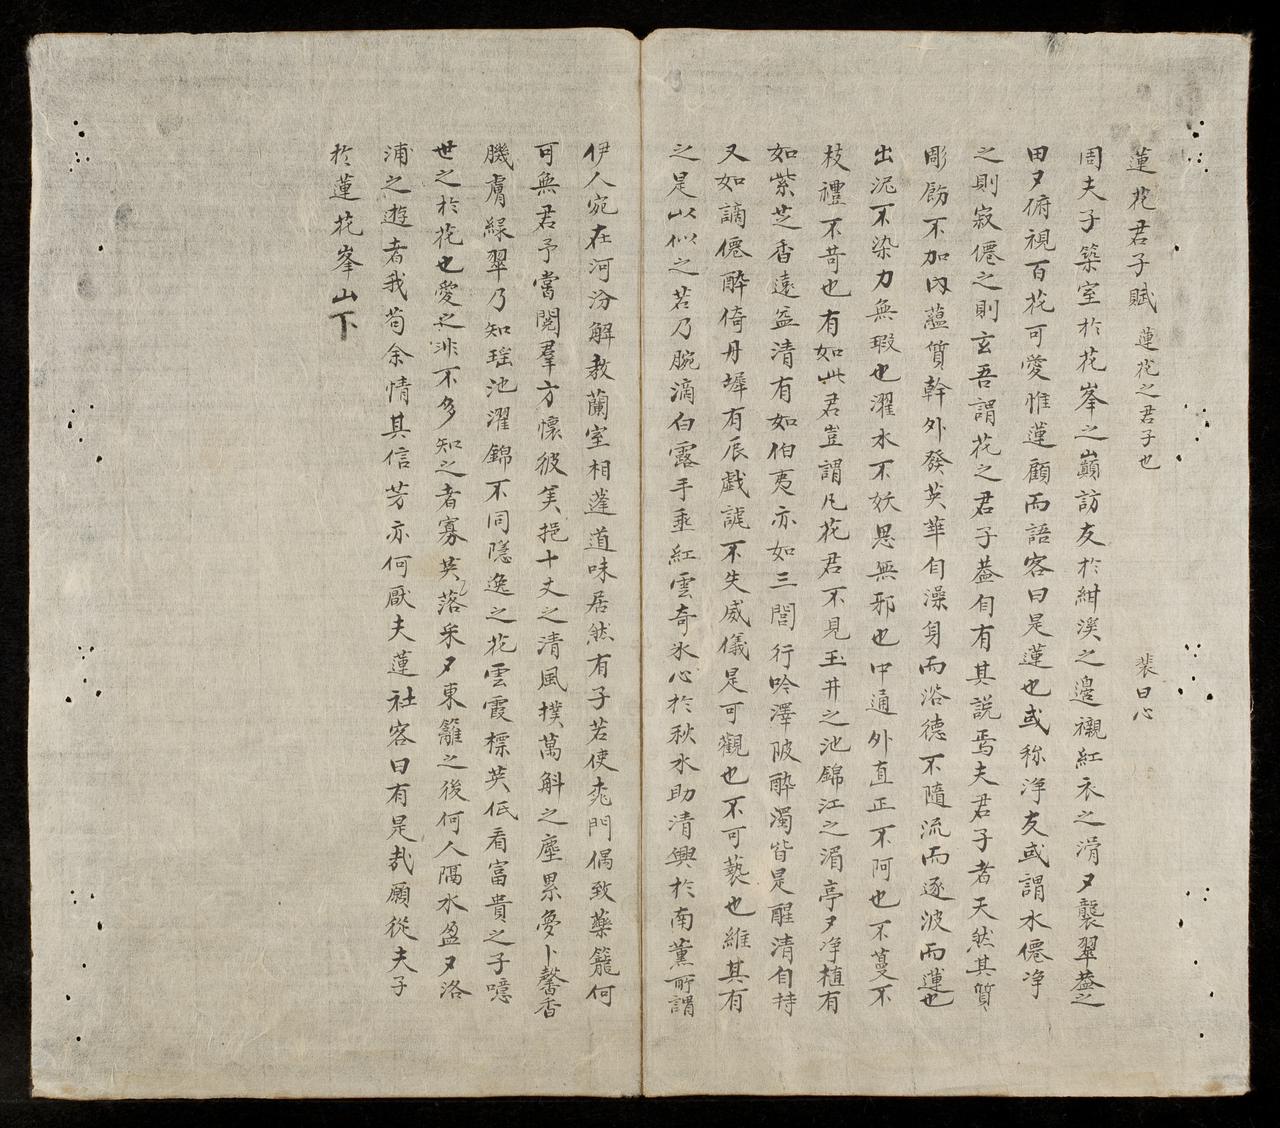 蓮花君子賦 蓮花之君子也 裴曰心
周夫子築室於花峯之巔訪友於紺溪之邊襯紅衣之滑夕襲翠盖之
田夕俯視百花可愛惟蓮顧而語客曰是蓮也或称淨友或謂水僊淨
之則寂僊之則玄吾謂花之君子盖自有其説焉夫君子者天然其質
彫餙不加內蘊質幹外發英華自澡身而浴德不隨流而逐波而蓮也
出泥不染力無瑕也濯水不妖思無邪也中通外直正不阿也不蔓不
枝禮不苛也有如此君豈謂凡花君不見玉井之池錦江之湄亭夕净植有
如紫芝香遠益清有如伯夷亦如三閭行吟澤陂酔濁皆是醒清自持
又如謫僊酔倚丹墀有辰戯謔不失威儀是可觀也不可褻也維其有
之是以似之若乃腕滴白露手垂紅雲奇氷心於秋水助清興於南薰所謂
伊人宛在河汾解教蘭室相蓬道味居然有子若使桃門偶致藥籠何
可無君予嘗閱羣方懷彼美挹十丈之清風撲萬斛之塵累兔卜馨香
膱膚綠翠乃知瑶池濯錦不同隱逸之花雲霞標英低看富貴之子噫
世之於花也愛之非不多知之者寡英落采夕東籬之後何人隔水盈夕洛
浦之遊者我苟余情其信芳亦何厭夫蓮社客曰有是哉願從夫子
於蓮花峯山下